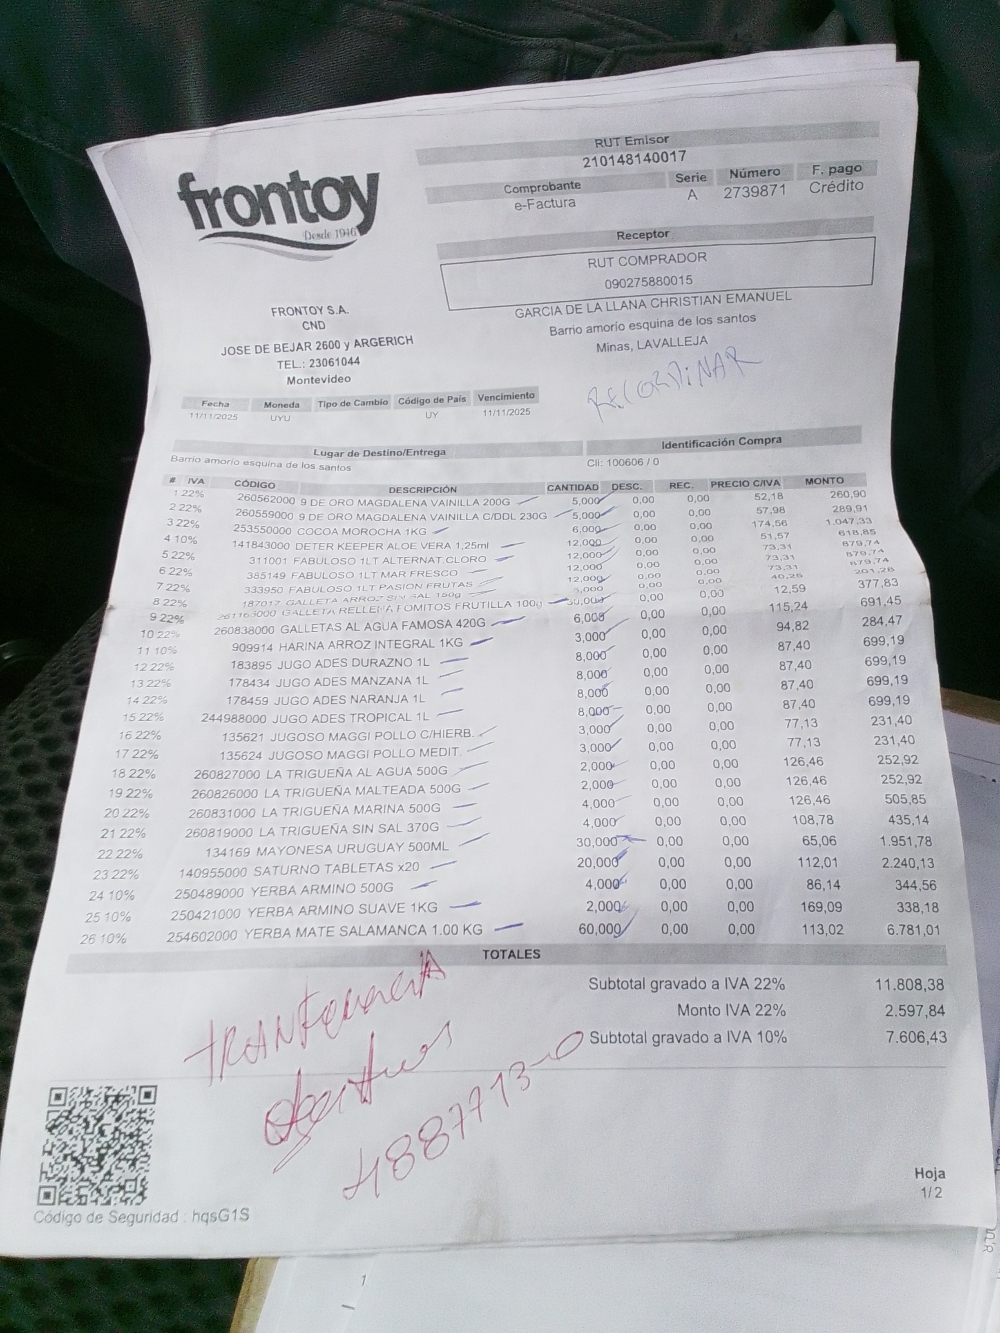 frontoy
Desde 1946
RUT Emisor
210148140017
Comprobante Serie Número F. pago
e-Factura A 2739871 Crédito
Receptor
RUT COMPRADOR
090275880015
GARCIA DE LA LLANA CHRISTIAN EMANUEL
Barrio amorio esquina de los santos
Minas, LAVALLEJA
FRONTOY S.A.
CND
JOSE DE BEJAR 2600 y ARGERICH
TEL.: 23061044
Montevideo
Fecha Moneda Tipo de Cambio Código de País Vencimiento
11/11/2025 UYU UY 11/11/2025
Lugar de Destino/Entrega Identificación Compra
Barrio amorio esquina de los santos Cli: 100606 / 0
# IVA CÓDIGO DESCRIPCIÓN CANTIDAD DESC. REC. PRECIO C/IVA MONTO
1 22% 260562000 9 DE ORO MAGDALENA VAINILLA 200G 5,000 0,00 0,00 52,18 260,90
2 22% 260559000 9 DE ORO MAGDALENA VAINILLA C/DDL 230G 5,000 0,00 0,00 57,98 289,91
3 22% 253550000 COCOA MOROCHA 1KG 6,000 0,00 0,00 174,56 1.047,33
4 10% 141843000 DETER KEEPER ALOE VERA 1,25ml 12,000 0,00 0,00 51,57 618,85
5 22% 311001 FABULOSO 1LT ALTERNAT.CLORO 12,000 0,00 0,00 73,31 879,74
6 22% 385149 FABULOSO 1LT MAR FRESCO 12,000 0,00 0,00 73,31 879,74
7 22% 333950 FABULOSO 1LT PASION FRUTAS 12,000 0,00 0,00 73,31 879,74
8 22% 187017 GALLETA ARROZ SIN SAL 150g 5,000 0,00 0,00 40,26
9 22% 261163000 GALLETA RELLENA FOMITOS FRUTILLA 100g 30,000 0,00 0,00 12,59 377,83
10 22% 260838000 GALLETAS AL AGUA FAMOSA 420G 6,000 0,00 0,00 115,24 691,45
11 10% 909914 HARINA ARROZ INTEGRAL 1KG 3,000 0,00 0,00 94,82 284,47
12 22% 183895 JUGO ADES DURAZNO 1L 8,000 0,00 0,00 87,40 699,19
13 22% 178434 JUGO ADES MANZANA 1L 8,000 0,00 0,00 87,40 699,19
14 22% 178459 JUGO ADES NARANJA 1L 8,000 0,00 0,00 87,40 699,19
15 22% 244988000 JUGO ADES TROPICAL 1L 8,000 0,00 0,00 87,40 699,19
16 22% 135621 JUGOSO MAGGI POLLO C/HIERB. 3,000 0,00 0,00 77,13 231,40
17 22% 135624 JUGOSO MAGGI POLLO MEDIT. 3,000 0,00 0,00 77,13 231,40
18 22% 260827000 LA TRIGUEÑA AL AGUA 500G 2,000 0,00 0,00 126,46 252,92
19 22% 260826000 LA TRIGUEÑA MALTEADA 500G 2,000 0,00 0,00 126,46 252,92
20 22% 260831000 LA TRIGUEÑA MARINA 500G 4,000 0,00 0,00 126,46 505,85
21 22% 260819000 LA TRIGUEÑA SIN SAL 370G 4,000 0,00 0,00 108,78 435,14
22 22% 134169 MAYONESA URUGUAY 500ML 30,000 0,00 0,00 65,06 1.951,78
23 22% 140955000 SATURNO TABLETAS x20 20,000 0,00 0,00 112,01 2.240,13
24 10% 250489000 YERBA ARMINO 500G 4,000 0,00 0,00 86,14 344,56
25 10% 250421000 YERBA ARMINO SUAVE 1KG 2,000 0,00 0,00 169,09 338,18
26 10% 254602000 YERBA MATE SALAMANCA 1.00 KG 60,000 0,00 0,00 113,02 6.781,01
TOTALES
Subtotal gravado a IVA 22% 11.808,38
Monto IVA 22% 2.597,84
Subtotal gravado a IVA 10% 7.606,43
4887713-0
Hoja
1/2
Código de Seguridad : hqsG1S